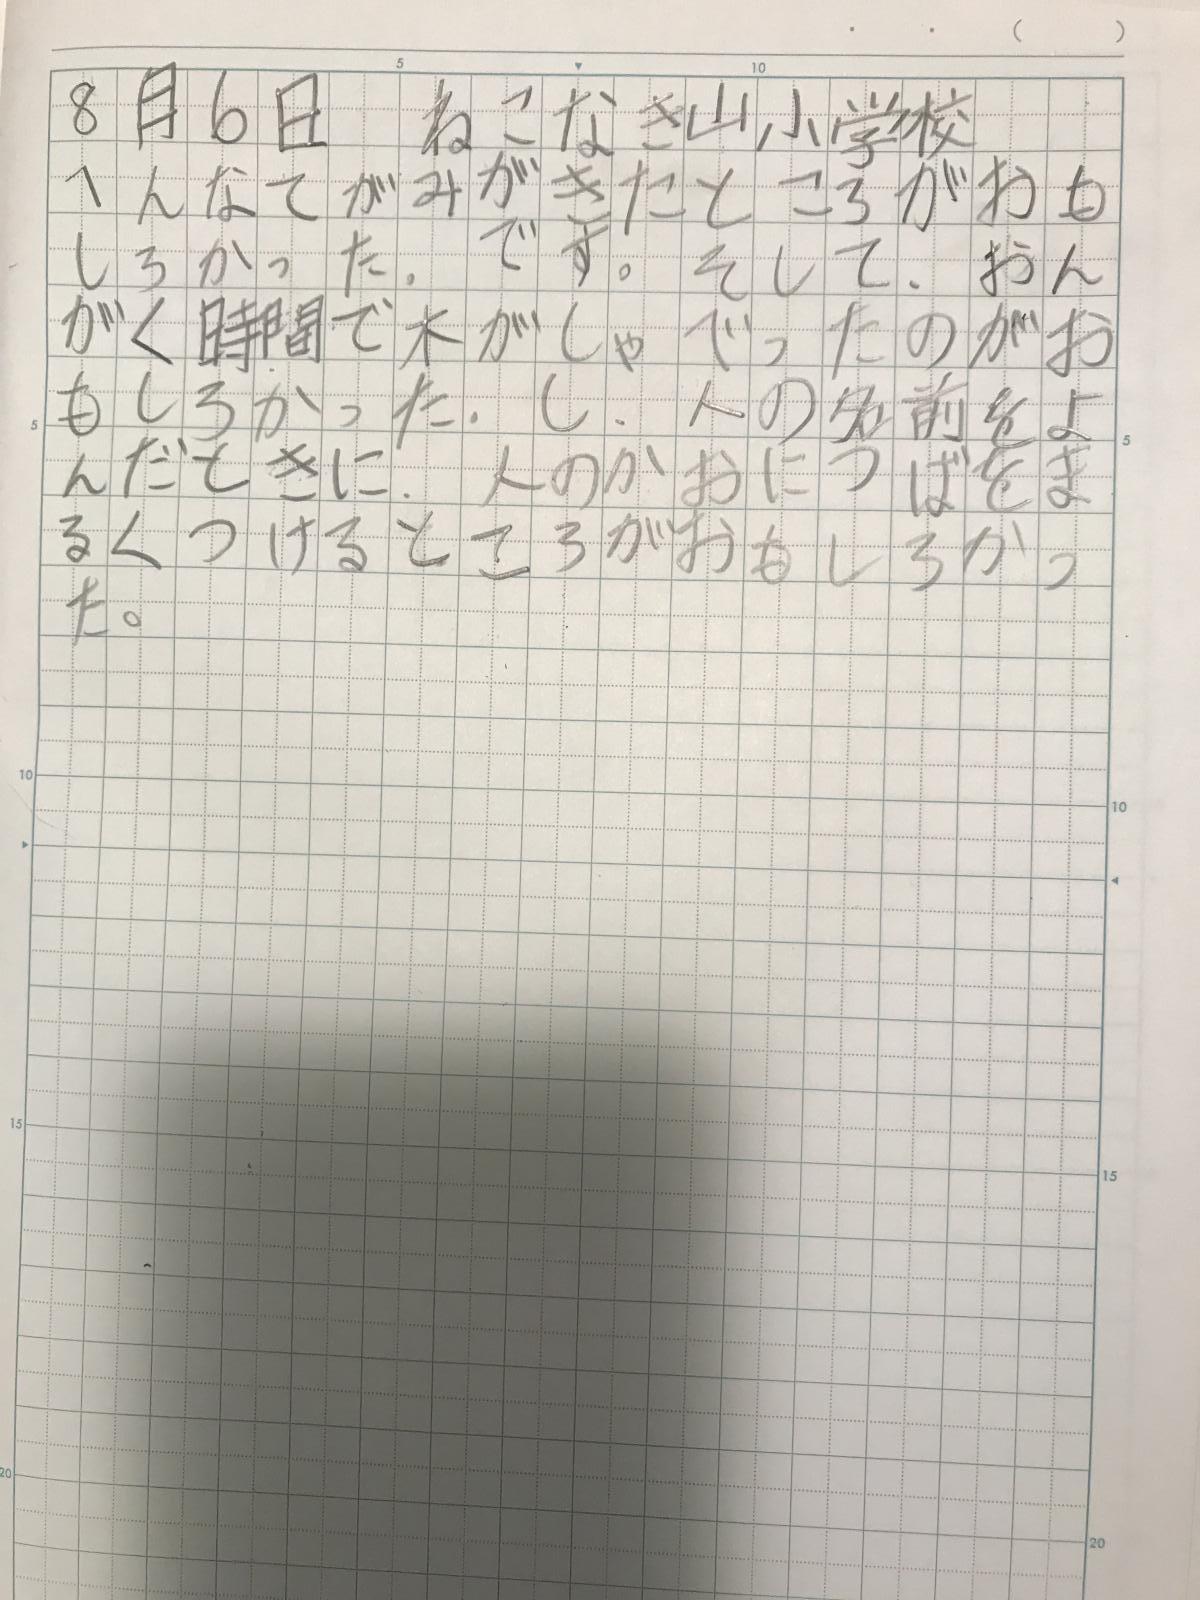 ( )
5 10
8月6日 ねこなき山小学校
へんなてがみがきたところがおも
しろかった.です。そして.おん
がく時間で木がしゃべったのがお
5 もしろかった.し.人の名前をよ 5
んだときに.人のかおにつばをま
るくつけるところがおもしろかっ
た。
10 10
15 15
20 20